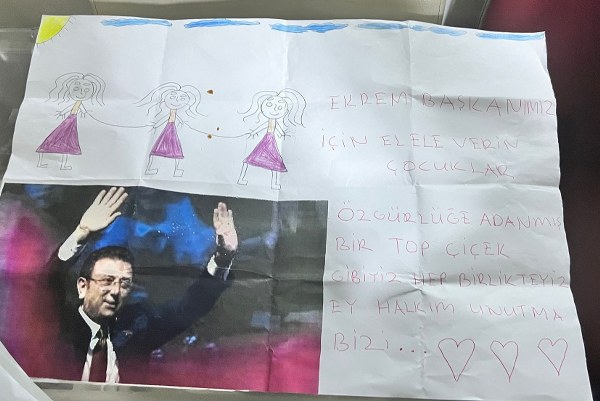 EKREM BAŞKANIMIZ
İÇİN EL ELE VERİN
ÇOCUKLAR
ÖZGÜRLÜĞE ADANMIŞ
BIR TOP ÇİÇEK
GIBIYIZ HEP BIRLIKTEYIZ
EY HALKIM UNUTMA
BİZİ...